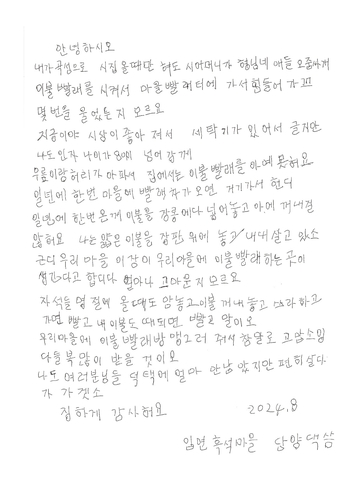 안녕하시오
내가 곡성으로 시집 올때만 해도 시어머니가 형님네 애들 오줌싸게
이불 빨래를 시켜서 마을 빨래터에 가서 힘들어 가꼬
몇번을 울었는지 모르요
지금이야 시상이 좋아 져서 세탁기가 있어서 글지만
나도 인자 나이가 80이 넘어 갑께
무릎이랑 허리가 아파서 집에서는 이불 빨래를 아예 못허요
일년에 한번 마을에 빨래차가 오면 거기가서 헌디
일년에 한번 온께 이불을 장롱에다 넣어놓고 아예 꺼내질
않허요 나는 얇은 이불을 장판 위에 놓고 내내 살고 있소
근디 우리 마을 이장이 우리마을에 이불 빨래하는 곳이
생긴다고 합디다 얼마나 고마운지 모르요
자식들 명절에 올때도 맘놓고 이불 꺼내 놓고 자라하고
가면 빨고 내 이불도 때되면 빨고 할이오
우리마을에 이불 빨래방 맹그러 줘서 참말로 고맙소잉
다들 복 많이 받을 것이오
나도 여러분님들 덕택에 얼마 안남았지만 편히 살다
가 가겟소
집하게 감사허요 2024.8
입면 흑석마을 담양댁 씀